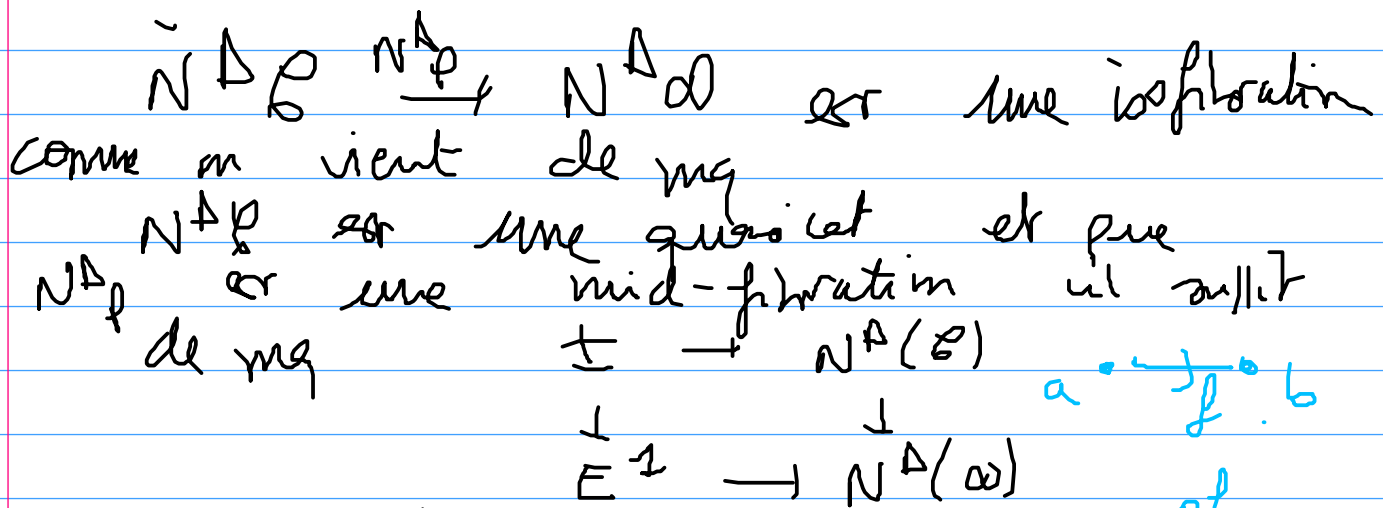 N^Δ 𝒞 —N^Δ p→ N^Δ 𝒟 est une isofibration
comme on vient de mq
N^Δ 𝒞 est une quasicat et que
N^Δ p est une mid-fibration il suffit
de mq 1 → N^Δ(𝒞)
a f b
↓ ↓
E^1 → N^Δ(𝒟)